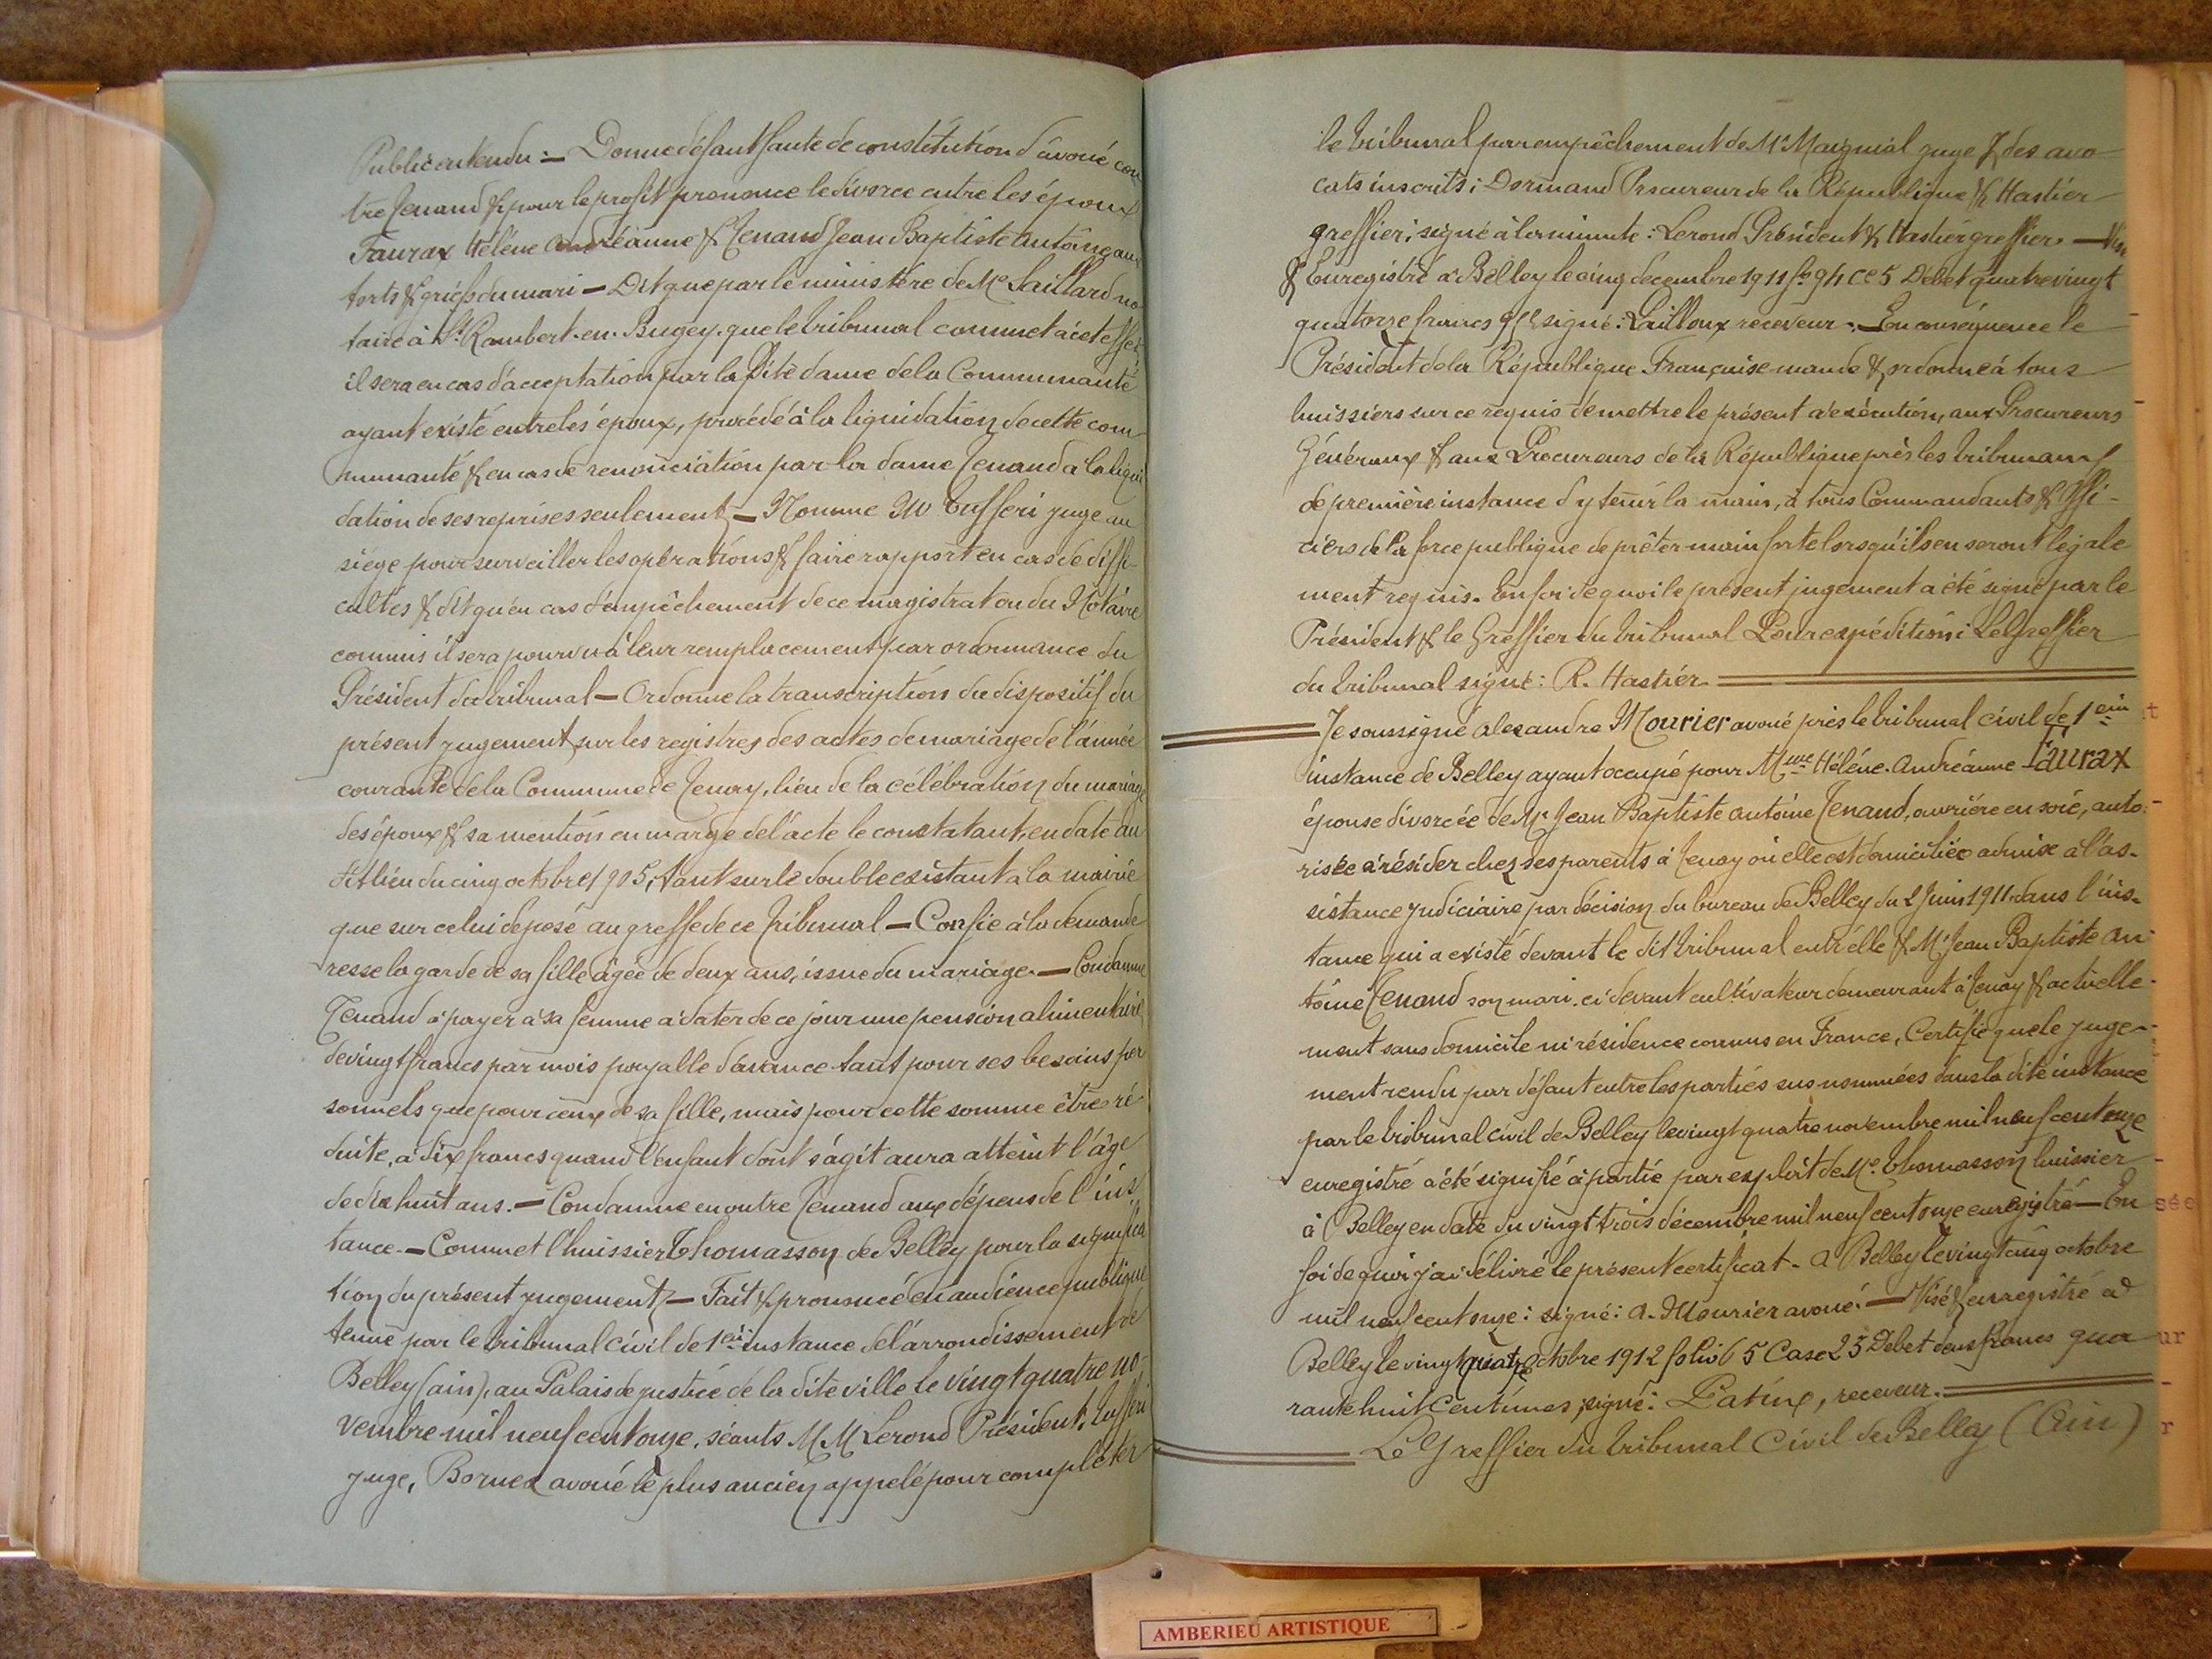 Public entendu :— Donne défaut faute de constitution d'avoué con
tre Tenand & pour le profit prononce le divorce entre les époux
Faurax Hélène Andréanne & Tenand Jean Baptiste Antoine aux
torts & griefs du mari — Dit que par le ministère de Me Saillard no
taire à St Rambert-en-Bugey. que le tribunal commet à cet effet
il sera en cas d'acceptation par la dite dame de la Communauté
ayant existé entre les époux, procédé à la liquidation de cette com
munauté & en cas de renonciation par la dame Tenand à la liqui
dation de ses reprises seulement — Nomme M Tufferi juge au
siège pour surveiller les opérations & faire rapport en cas de diffi-
cultés & dit qu'en cas d'empêchement de ce magistrat ou du Notaire
commis il sera pourvu à leur remplacement par ordonnance du
Président du tribunal — Ordonne la transcription du dispositif du
présent jugement sur les registres des actes de mariage de l'année
courante de la Commune de Tenay, lieu de la célébration du mariage
des époux & sa mention en marge de l'acte le constatant, en date au
dit lieu du cinq octobre 1905, tant sur le double existant à la mairie
que sur celui déposé au greffe de ce tribunal — Confie à la demande
resse la garde de sa fille âgée de deux ans, issue du mariage — Condamne
Tenand à payer à sa femme à dater de ce jour une pension alimentaire
de vingt francs par mois payable d'avance tant pour ses besoins per
sonnels que pour ceux de sa fille, mais pour cette somme être ré
duite, à dix francs quand l'enfant dont s'agit aura atteint l'âge
de dix huit ans. — Condamne en outre Tenand aux dépens de l'ins
tance — Commet l'huissier Thomasson de Belley pour la significa
tion du présent jugement — Fait & prononcé en audience publique
tenue par le tribunal civil de 1ère instance de l'arrondissement de
Belley (ain), au Palais de justice de la dite ville le vingt quatre no-
vembre mil neuf cent onze, séants MM Lerond Président, Tufferi
juge, avoué le plus ancien appelé pour compléter
le tribunal par empêchement de Mr juge & des avo
cats inscrits ; Dormand Procureur de la République & Hastier
greffier ; signé à la minute : Lerond Président & Hastier greffier. —
& Enregistré à Belley le cinq décembre 1911 fo 94 Ce 5 Débet quatre vingt
quatorze francs signé : Lailloux receveur. — En conséquence le
Président de la République Française mande & ordonne à tous
huissiers sur ce requis de mettre le présent à exécution, aux Procureurs
Généraux & aux Procureurs de la République près les tribunaux
de première instance d'y tenir la main, à tous Commandants & Offi-
ciers de la force publique de prêter main forte lorsqu'ils en seront légale
ment requis. En foi de quoi le présent jugement a été signé par le
Président & le Greffier du tribunal Pour expédition : Le Greffier
du tribunal signé : R. Hastier
Je soussigné Alexandre Mourier avoué près le tribunal civil de 1ère
instance de Belley ayant occupé pour Mme Hélène-Andréanne Faurax
épouse divorcée de Mr Jean Baptiste Antoine Tenand, ouvrière en soie, auto-
risée à résider chez ses parents à Tenay où elle est domiciliée admise à l'as-
sistance judiciaire par décision du bureau de Belley du 2 Juin 1911 dans l'ins-
tance qui a existé devant le dit tribunal entr'elle & Mr Jean Baptiste An
toine Tenand son mari, ci devant cultivateur demeurant à Tenay & actuelle-
ment sans domicile ni résidence connus en France, Certifie que le juge-
ment rendu par défaut entre les parties sus nommées dans la dite instance
par le tribunal civil de Belley le vingt quatre novembre mil neuf cent onze
enregistré a été signifié à partie par exploit de Me Thomasson huissier
à Belley en date du vingt trois décembre mil neuf cent onze enregistré — En
foi de quoi j'ai délivré le présent certificat — à Belley le vingt cinq octobre
mil neuf cent onze : signé : A. Mourier avoué. — Visé & enregistré à
Belley le vingt quatre octobre 1912 folio 65 Case 23 Débet deux francs qua
rante huit Centimes, signé : receveur.
Le Greffier du tribunal Civil de Belley (Ain)
sée
ur
r
AMBERIEU ARTISTIQUE